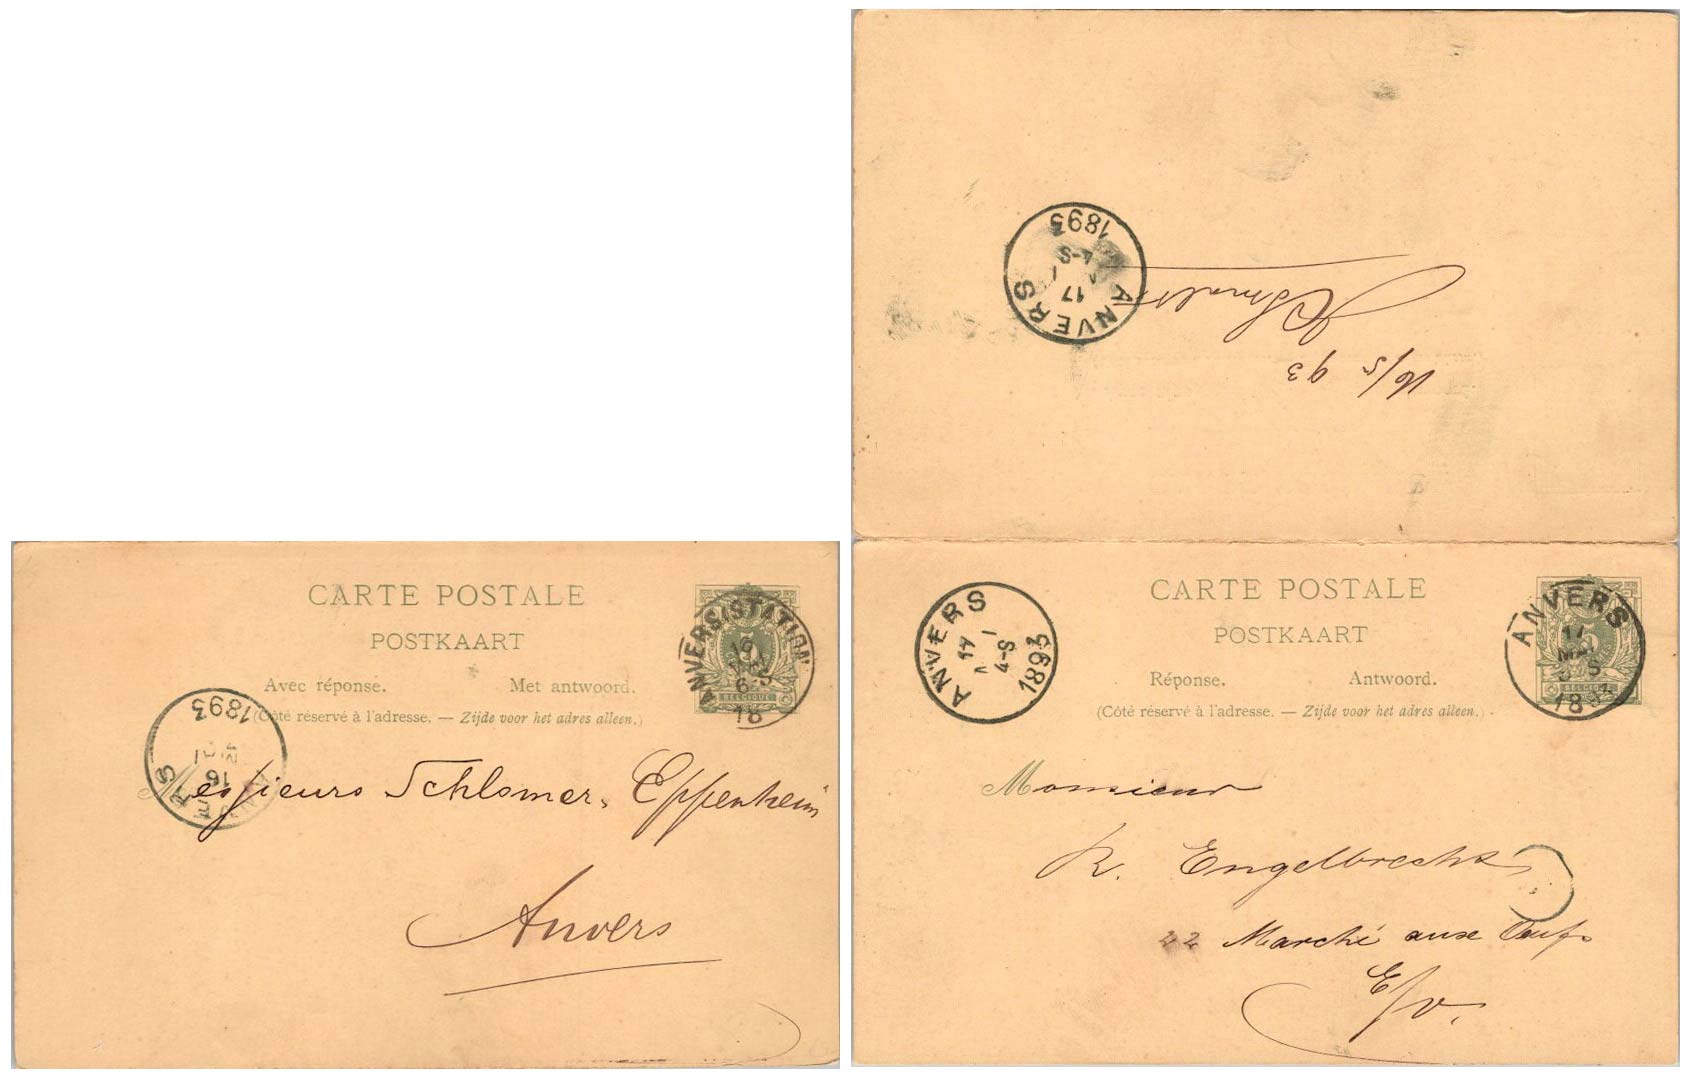 CARTE POSTALE
POSTKAART
Avec réponse. Met antwoord.
(Côté réservé à l'adresse. — Zijde voor het adres alleen.)
ANVERS (STATION)
16
6-S
18
5
BELGIQUE
16
1893
Messieurs Schlomer, Eppenheim
Anvers
16/5 93
ANVERS
17
4-S
1893
CARTE POSTALE
POSTKAART
Réponse. Antwoord.
(Côté réservé à l'adresse. — Zijde voor het adres alleen.)
ANVERS
17
4-S
1893
ANVERS
17
MAI
5
BELGIQUE
Monsieur
R. Engelbrecht
22 Marché aux Oeufs
E/v.